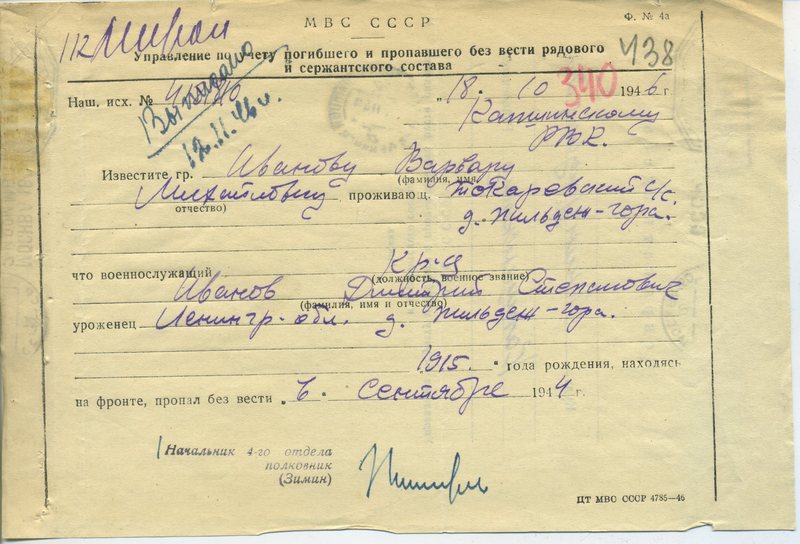 МВС СССР
Ф. № 4а
112
438
Управление по учету погибшего и пропавшего без вести рядового
и сержантского состава
Выписано
12.11.46 г.
340
Наш. исх. №
„18. 10 1946 г
РВК.
Известите гр. Иванову Варвару
(фамилия, имя,
Михайловну проживающ. Токаревский с/с.
отчество)
д. Жильдеж-гора.
что военнослужащий кр-ц
(должность, военное звание)
Иванов Дмитрий Степанович
(фамилия, имя и отчество)
уроженец Ленингр. обл. д. Жильдеж-гора.
1915. года рождения, находясь
на фронте, пропал без вести „в. сентябре 1944 г.
Начальник 4-го отдела
полковник
(Зимин)
ЦТ МВО СССР 4785—46